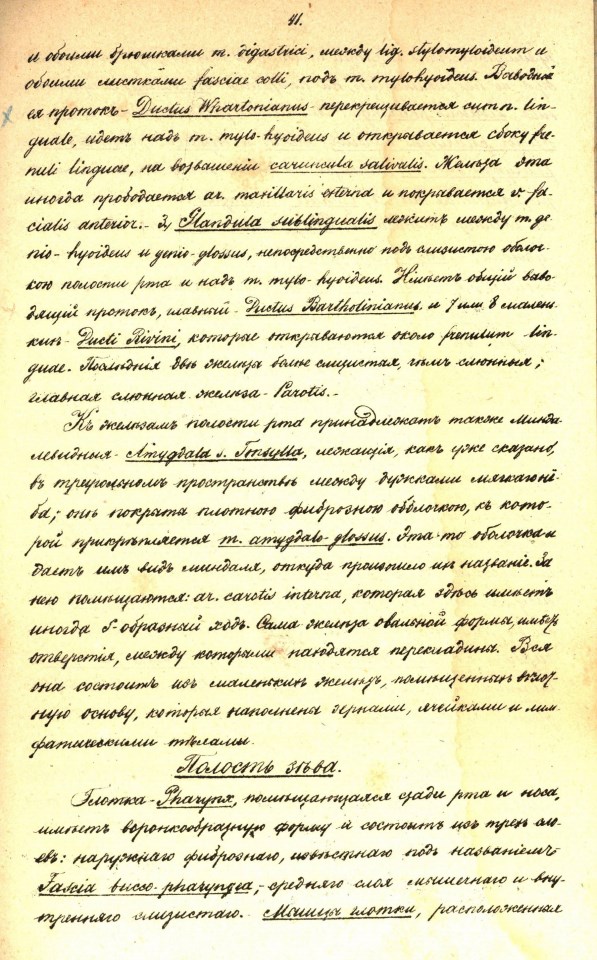 41.
и обоими брюшками m. digastrici, между lig. stylomyloideum и
обоими листками fasciae colli, подъ m. mylohyoideus. Выводной
ея протокъ - Ductus Whartonianus - перекрещивается съ n. lin-
guale, идетъ надъ m. mylo-hyoideus и открывается сбоку fre-
nuli linguae, на возвышеніи caruncula salivalis. Железа эта
иногда прободается ar. maxillaris externa и покрывается v. fa-
cialis anterior. - 3) Glandula sublingualis лежитъ между m. ge-
nio-hyoideus и genio-glossus, непосредственно подъ слизистою оболоч-
кою полости рта и надъ m. mylo-hyoideus. Имѣетъ общій выво-
дящій протокъ, главный - Ductus Bartholinianus, и 7 или 8 малень-
кихъ - Ducti Rivini, которые открываются около frenulum lin-
guae. Послѣднія двѣ железы болѣе слизистыя, чѣмъ слюнныя;
главная слюнная железа - Parotis. -
Къ железамъ полости рта принадлежатъ также Минда-
левидныя - Amygdala s. Tonsylla, лежащія, какъ уже сказано,
въ треугольномъ пространствѣ между дужками мягкаго нё-
ба; онѣ покрыты плотною фиброзною оболочкою, къ кото-
рой прикрѣпляется m. amygdalo-glossus. Эта то оболочка и
даетъ имъ видъ миндаля, откуда произошло ихъ названіе. За
нею помѣщаются: ar. carotis interna, которая здѣсь имѣетъ
иногда S-образный ходъ. Сама железа овальной формы, имѣетъ
отверстія, между которыми находятся перекладины. Вся
она состоитъ изъ маленькихъ железъ, помѣщенныхъ въ
основу, которая наполнена зернами, ячейками и лим-
фатическими тѣлами.
Полость зѣва.
Глотка - Pharynx, помѣщающаяся сзади рта и носа,
имѣетъ воронкообразную форму и состоитъ изъ трехъ сло-
евъ: наружнаго фибрознаго, извѣстнаго подъ названіемъ
Fascia bucco-pharyngea, - средняго слоя мышечнаго и вну-
тренняго слизистаго. Мышцы глотки, расположенныя